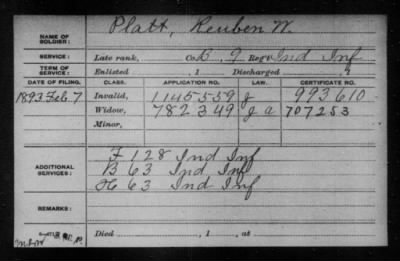 NAME OF SOLDIER: Platt, Reuben W.
SERVICE: Late rank, Co. B, 9 Reg't Ind Inf
TERM OF SERVICE: Enlisted , 1 Discharged , 1
DATE OF FILING. CLASS. APPLICATION NO. LAW. CERTIFICATE NO.
1893 Feb 7 Invalid, 1145559 J 993610
Widow, 782349 J a 707253
Minor,
ADDITIONAL SERVICES: F 128 Ind Inf
B 63 Ind Inf
H 63 Ind Inf
REMARKS:
Died , 1 , at